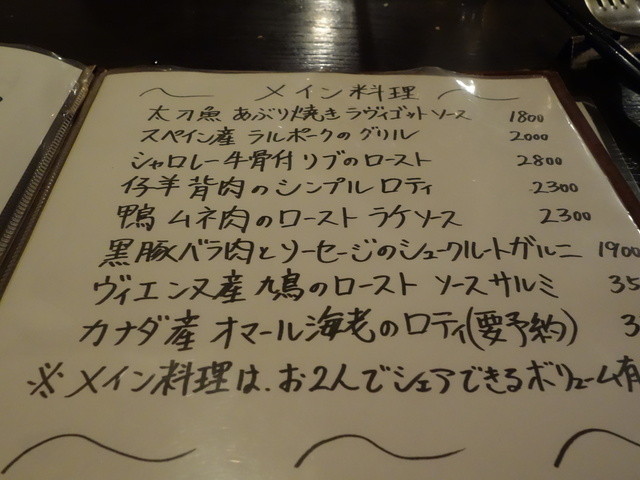 メイン料理
太刀魚 あぶり焼き ラヴィゴットソース 1800
スペイン産 ラルポークのグリル 2000
シャロレー牛骨付リブのロースト 2800
仔羊背肉のシンプルロティ 2300
鴨 ムネ肉のロースト ラケソース 2300
黒豚バラ肉とソーセージのシュークルートガルニ 1900
ヴィエンヌ産 鳩のロースト ソースサルミ 35
カナダ産 オマール海老のロティ(要予約) 3
※メイン料理は、お2人でシェアできるボリューム有